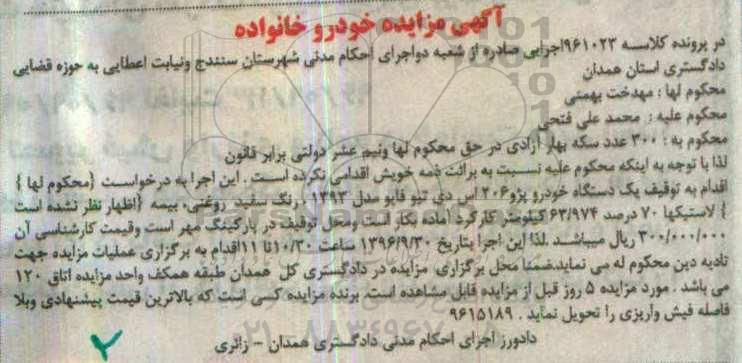 آگهی مزایده خودرو خانواده
در پرونده کلاسه ۹۶۱۰۲۳اجرایی صادره از شعبه دواجرای احکام مدنی شهرستان سنندج ونیابت اعطایی به حوزه قضایی
دادگستری استان همدان
محکوم لها : مهدخت بهمنی
محکوم علیه : محمد علی فتحی
محکوم به : ۳۰۰ عدد سکه بهار آزادی در حق محکوم لها ونیم عشر دولتی برابر قانون
لذا با توجه به اینکه محکوم علیه نسبت به برائت ذمه خویش اقدامی نکرده است . این اجرا به درخواست {محکوم لها }
اقدام به توقیف یک دستگاه خودرو پژو۲۰۶ اس دی تیو فابو مدل ۱۳۹۳ ، رنگ سفید روغنی، بیمه {اظهار نظر نشده است
} لاستیکها ۷۰ درصد ۶۳/۹۷۴ کیلومتر کارکرد آماده بکار است ومحل توقیف در پارکینگ مهر است وقیمت کارشناسی آن
۳۰۰/۰۰۰/۰۰۰ ریال میباشد .لذا این اجرا بتاریخ ۱۳۹۶/۹/۳۰ ساعت ۱۰/۳۰تا ۱۱اقدام به برگزاری عملیات مزایده جهت
تادیه دین محکوم له می نماید.ضمنا محل برگزاری مزایده در دادگستری کل همدان طبقه همکف واحد مزایده اتاق ۱۲۰
می باشد . مورد مزایده ۵ روز قبل از مزایده قابل مشاهده است. برنده مزایده کسی است که بالاترین قیمت پیشنهادی وبلا
فاصله فیش واریزی را تحویل نماید . ۹۶۱۵۱۸۹
دادورز اجرای احکام مدنی دادگستری همدان - زائری
۰۲۱-۸۸۳۴۹۶۷۰